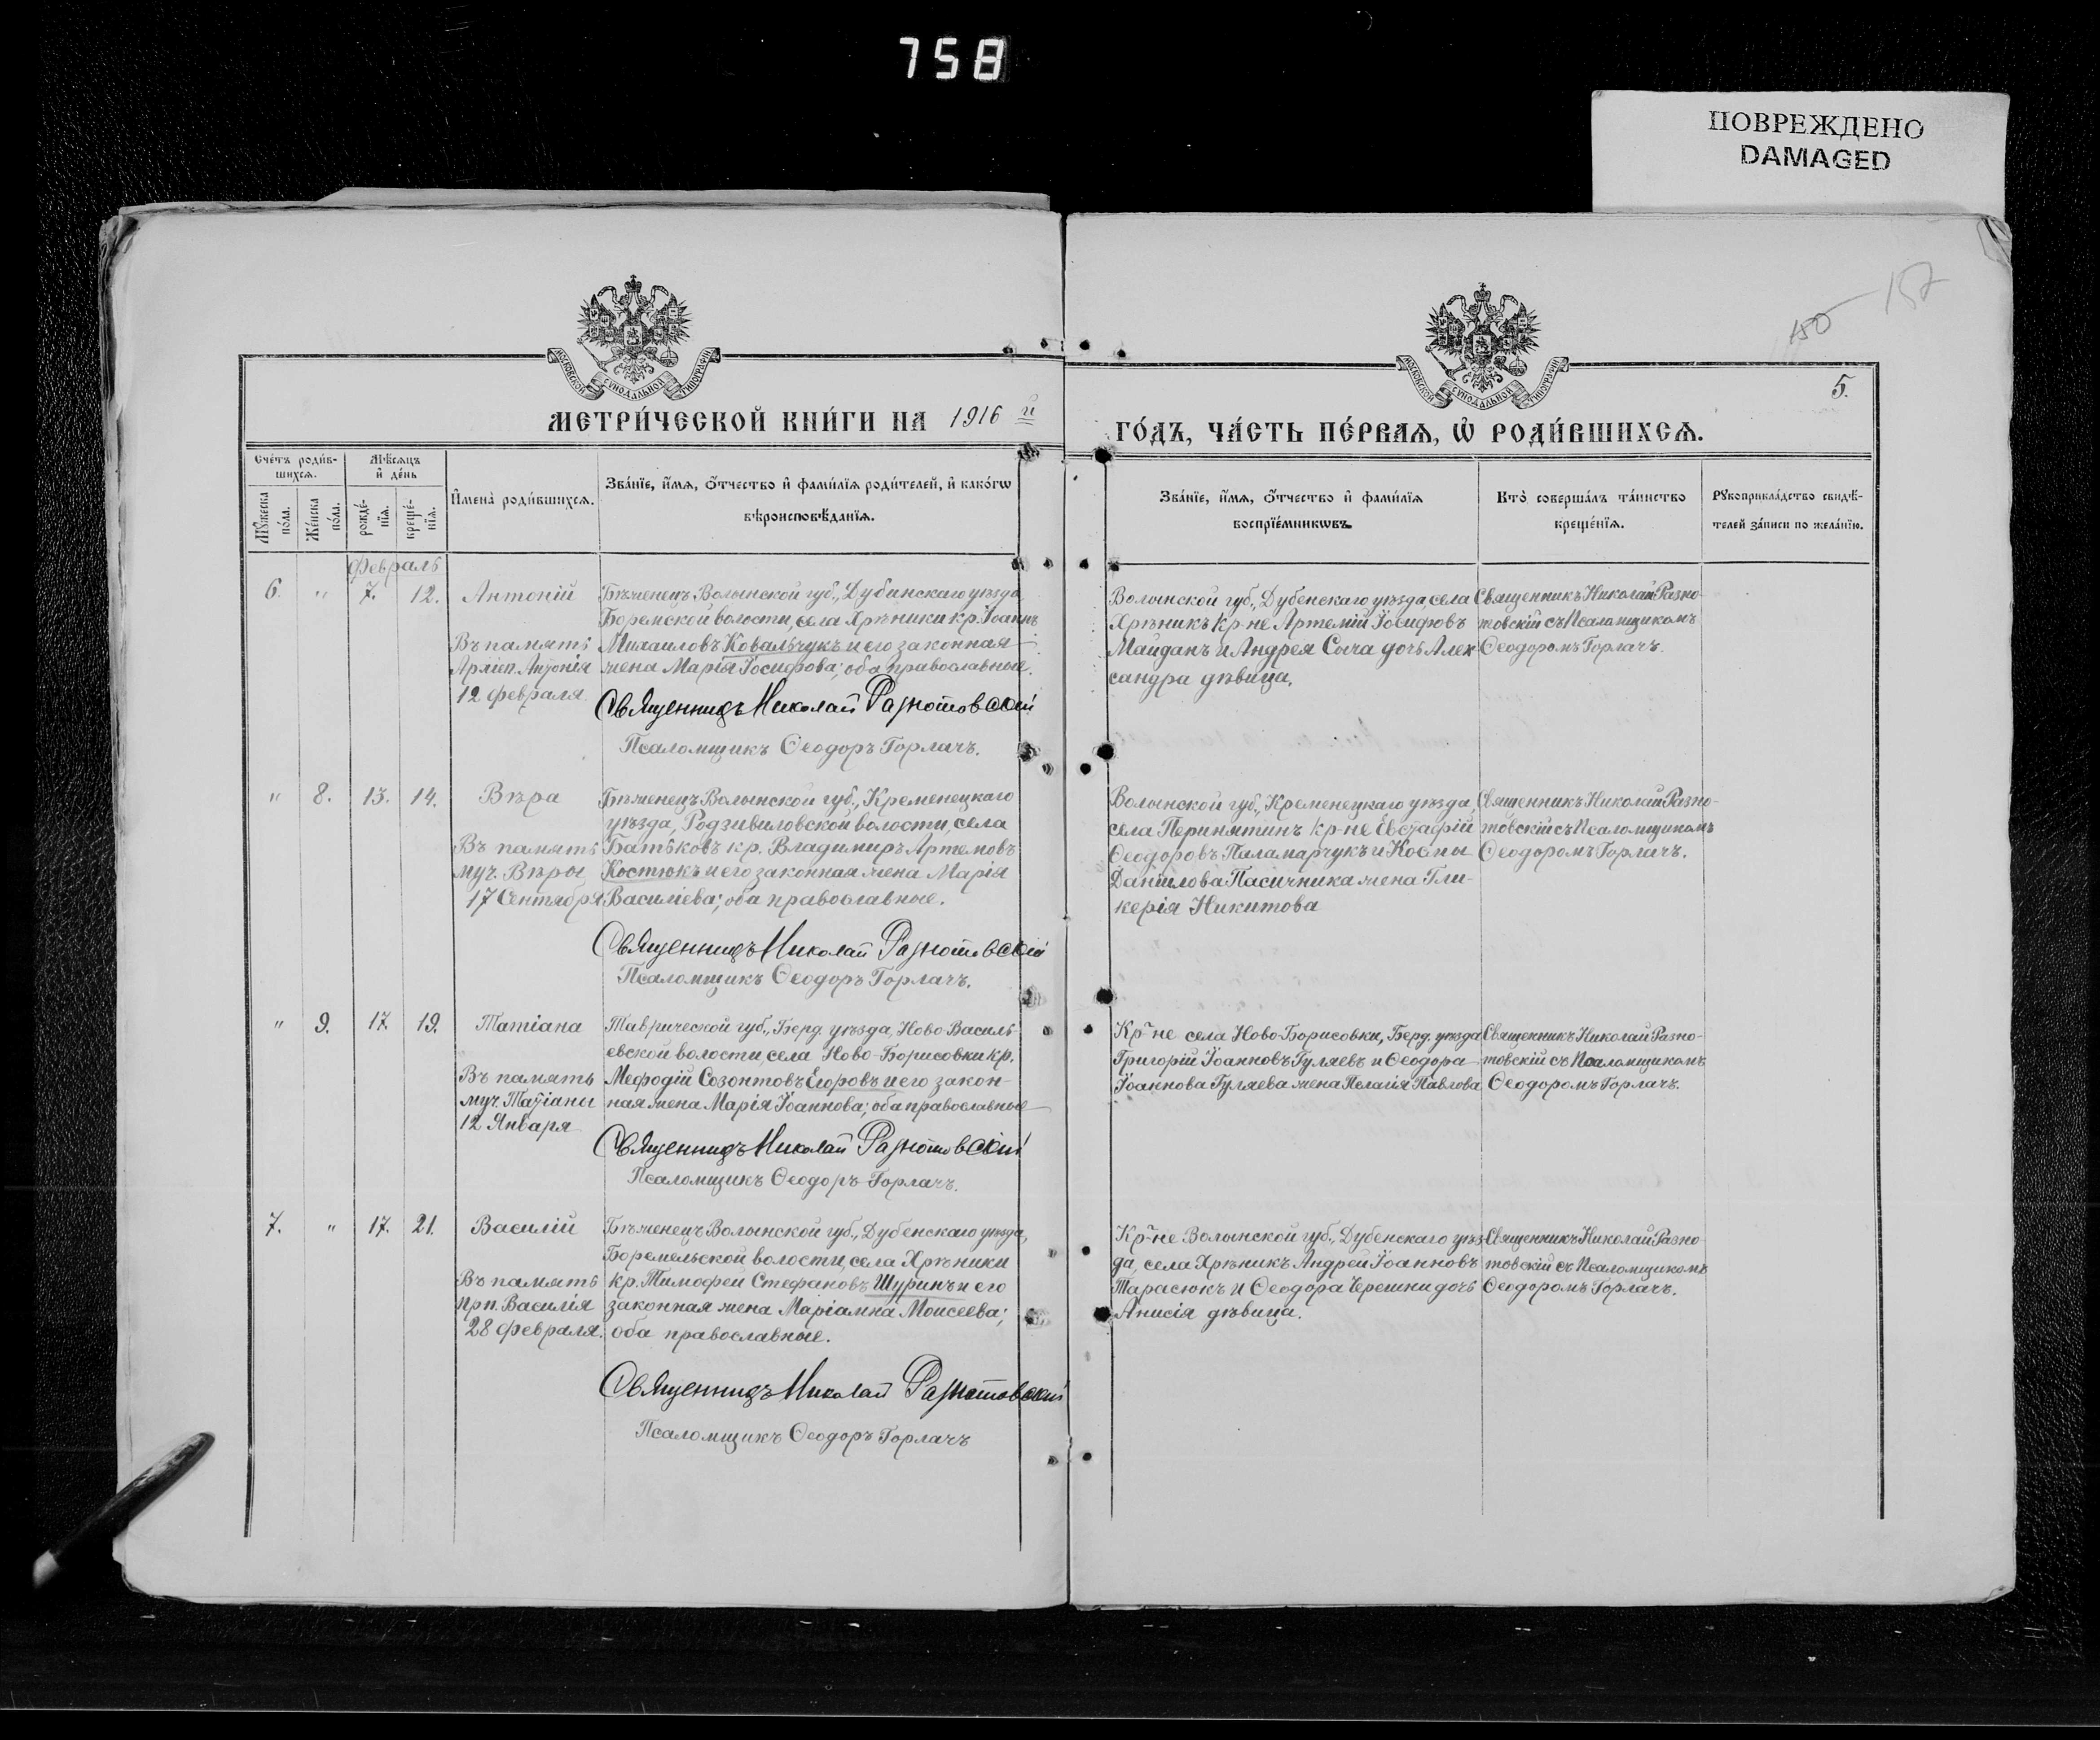 758
ПОВРЕЖДЕНО
DAMAGED
157
150
5.
МОСКОВСКОЙ СѴНОДАЛЬНОЙ ТИПОГРАФІИ
МОСКОВСКОЙ СѴНОДАЛЬНОЙ ТИПОГРАФІИ
МЕТРИ́ЧЕСКОЙ КНИ́ГИ НА 1916 й
ГО́ДЪ, ЧА́СТЬ ПЕ́РВАѦ, Ѡ҆ РОДИ́ВШИХСѦ.
Сче́тъ роди́в-
шихсѧ.
Мѣ́сѧцъ
и҆ де́нь
Мꙋ́жеска
по́ла.
Же́нска
по́ла.
рожде́-
нїѧ.
креще́-
нїѧ.
И҆мена̀ роди́вшихсѧ.
Зва́нїе, и҆́мѧ, ѻ҆́тчество и҆ фами́лїѧ роди́телей, и҆ како́гѡ
вѣроисповѣ́данїѧ.
Зва́нїе, и҆́мѧ, ѻ҆́тчество и҆ фами́лїѧ
воспрїе́мникѡвъ.
Кто̀ соверша́лъ та́инство
креще́нїѧ.
Рꙋкоприкла́дство свидѣ́-
телей за́писи по жела́нїю.
Февраль
6. " 7. 12. Антоній
Въ память
Архіеп. Антонія
12 февраля
Бѣженецъ Волынской губ., Дубинскаго уѣзда
Боремской волости, села Хрѣники кр. Іоаннъ
Михаиловъ Ковальчукъ и его законная
жена Марія Іосифова; оба православные.
Священникъ Николай Разнотовскій
Псаломщикъ Ѳеодоръ Горлачъ.
Волынской губ., Дубенскаго уѣзда, села
Хрѣникъ кр-не Артемій Іосифовъ
Майданъ и Андрея Сыча дочь Алек
сандра дѣвица.
Священникъ Николай Разно-
товскій съ Псаломщикомъ
Ѳеодоромъ Горлачъ.
" 8. 13. 14. Вѣра
Въ память
муч. Вѣры
17 Сентября
Бѣженецъ Волынской губ., Кременецкаго
уѣзда, Родзивиловской волости, села
Батьковъ кр. Владимиръ Артемовъ
Костюкъ и его законная жена Марія
Василіева; оба православные.
Священникъ Николай Разнотовскій
Псаломщикъ Ѳеодоръ Горлачъ.
Волынской губ., Кременецкаго уѣзда,
села Перинятинъ кр-не Евстафій
Ѳеодоровъ Паламарчукъ и Космы
Даниилова Пасичника жена Гли-
керія Никитова
Священникъ Николай Разно-
товскій съ Псаломщикомъ
Ѳеодоромъ Горлачъ.
" 9. 17. 19. Татіана
Въ память
муч. Татіаны
12 Января
Таврической губ., Берд. уѣзда, Ново Василь-
евской волости, села Ново-Борисовки кр.
Мефодій Созонтовъ Егоровъ и его закон-
ная жена Марія Іоаннова; оба православные
Священникъ Николай Разнотовскій
Псаломщикъ Ѳеодоръ Горлачъ.
Кр-не села Ново-Борисовки, Берд. уѣзда
Григорій Іоанновъ Гуляевъ и Ѳеодора
Іоаннова Гуляева жена Пелагія Павлова
Священникъ Николай Разно-
товскій съ Псаломщикомъ
Ѳеодоромъ Горлачъ.
7. " 17. 21. Василій
Въ память
Прп. Василія
28 февраля.
Бѣженецъ Волынской губ., Дубенскаго уѣзда,
Боремельской волости, села Хрѣники
кр. Тимофей Стефановъ Шуринъ и его
законная жена Маріамна Моисеева;
оба православные.
Священникъ Николай Разнотовскій
Псаломщикъ Ѳеодоръ Горлачъ
Кр-не Волынской губ., Дубенскаго уѣз-
да, села Хрѣникъ Андрей Іоанновъ
Тарасюкъ и Ѳеодора Черешни дочь
Анисія дѣвица.
Священникъ Николай Разно-
товскій съ Псаломщикомъ
Ѳеодоромъ Горлачъ.